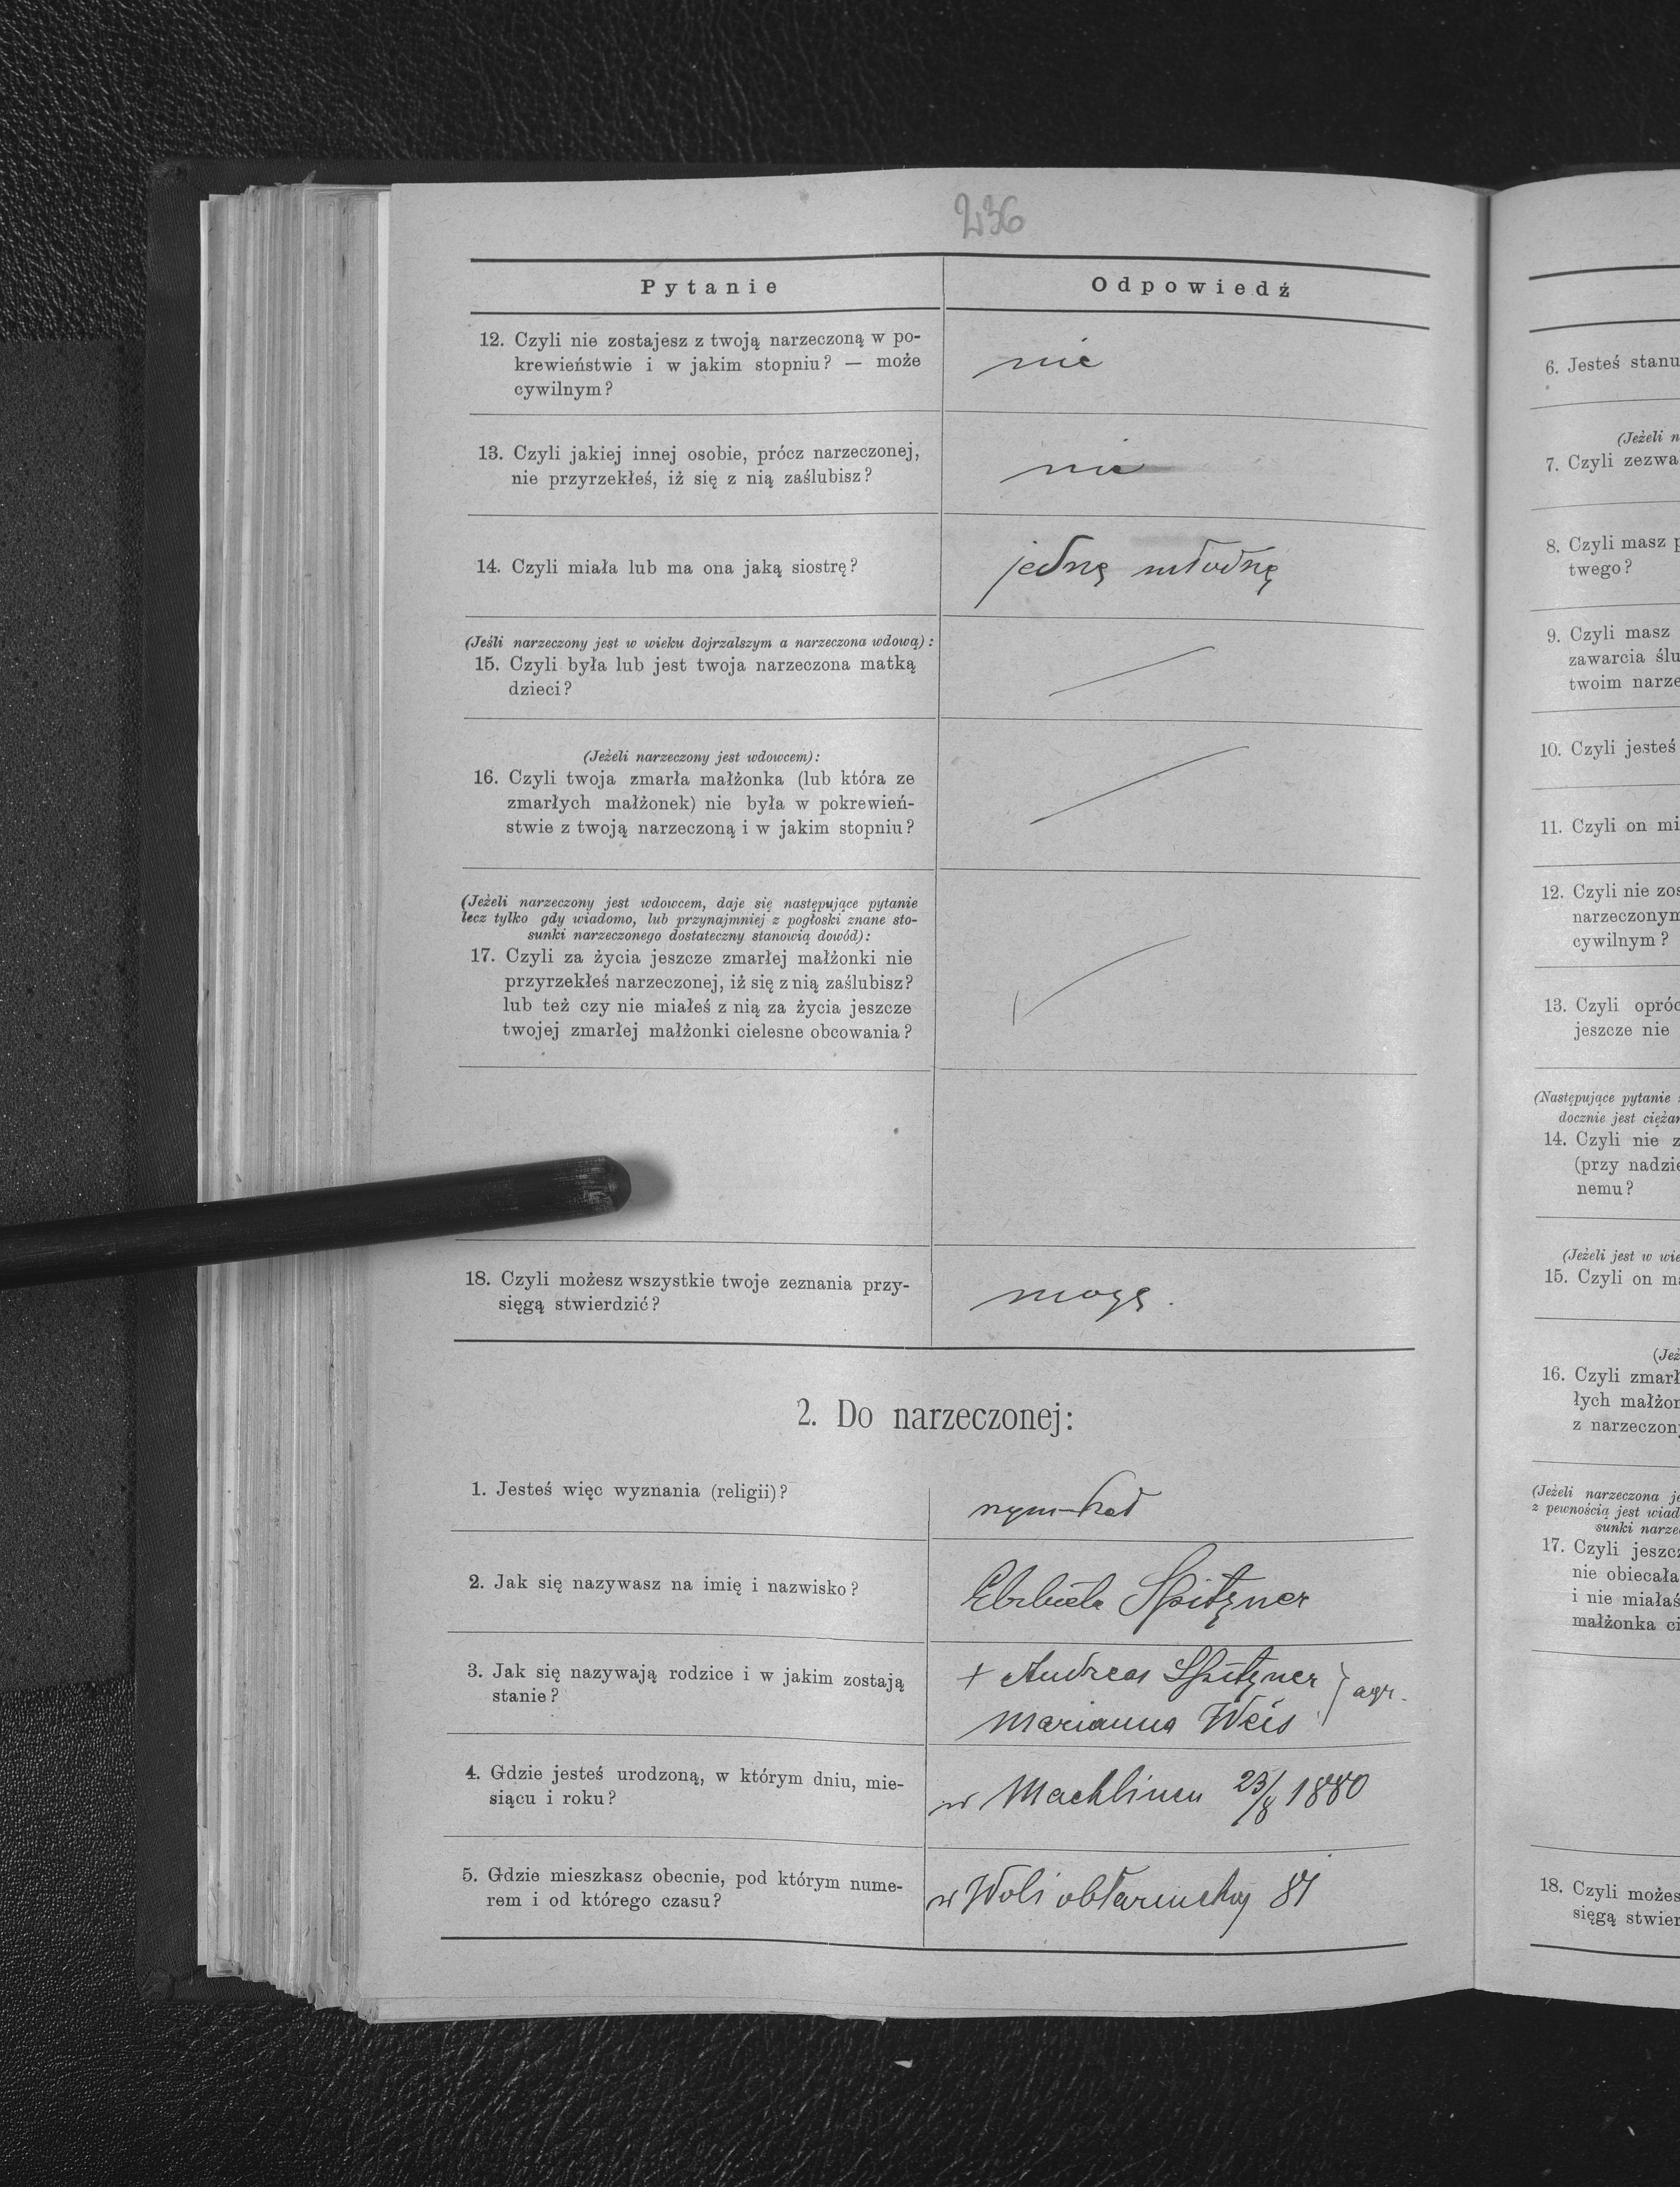 236
Pytanie
Odpowiedź
12. Czyli nie zostajesz z twoją narzeczoną w po-
krewieństwie i w jakim stopniu? — może
cywilnym?
nie
13. Czyli jakiej innej osobie, prócz narzeczonej,
nie przyrzekłeś, iż się z nią zaślubisz?
nie
14. Czyli miała lub ma ona jaką siostrę?
jedną młodną
(Jeśli narzeczony jest w wieku dojrzalszym a narzeczona wdową):
15. Czyli była lub jest twoja narzeczona matką
dzieci?
(Jeżeli narzeczony jest wdowcem):
16. Czyli twoja zmarła małżonka (lub która ze
zmarłych małżonek) nie była w pokrewień-
stwie z twoją narzeczoną i w jakim stopniu?
(Jeżeli narzeczony jest wdowcem, daje się następujące pytanie
lecz tylko gdy wiadomo, lub przynajmniej z pogłoski znane sto-
sunki narzeczonego dostateczny stanowią dowód):
17. Czyli za życia jeszcze zmarłej małżonki nie
przyrzekłeś narzeczonej, iż się z nią zaślubisz?
lub też czy nie miałeś z nią za życia jeszcze
twojej zmarłej małżonki cielesne obcowania?
18. Czyli możesz wszystkie twoje zeznania przy-
sięgą stwierdzić?
mogę.
2. Do narzeczonej:
1. Jesteś więc wyznania (religii)?
rzym-kat
2. Jak się nazywasz na imię i nazwisko?
Elżbieta Spitzner
3. Jak się nazywają rodzice i w jakim zostają
stanie?
+ Andreas Spitzner
Marianna Weis
} agr.
4. Gdzie jesteś urodzoną, w którym dniu, mie-
siącu i roku?
w Machlincu 23/8 1880
5. Gdzie mieszkasz obecnie, pod którym nume-
rem i od którego czasu?
w Woli 81
6. Jesteś stanu
(Jeżeli n
7. Czyli zezwa
8. Czyli masz p
twego?
9. Czyli masz
zawarcia ślu
twoim narze
10. Czyli jesteś
11. Czyli on mi
12. Czyli nie zos
narzeczonym
cywilnym?
13. Czyli opróc
jeszcze nie
(Następujące pytanie
docznie jest ciężar
14. Czyli nie z
(przy nadzie
nemu?
(Jeżeli jest w wie
15. Czyli on ma
(Jeż
16. Czyli zmarł
łych małżon
z narzeczony
(Jeżeli narzeczona je
z pewnością jest wiad
sunki narze
17. Czyli jeszcz
nie obiecała
i nie miałaś
małżonka ci
18. Czyli możes
sięgą stwier